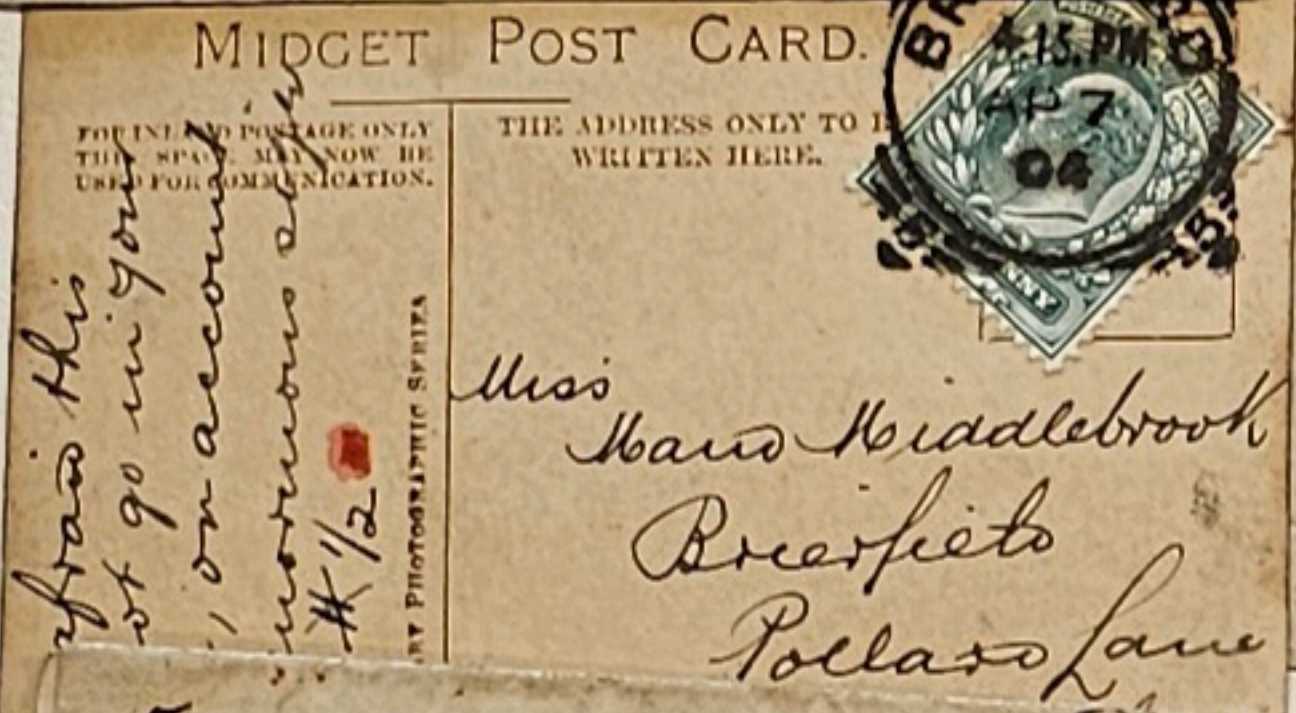 MIDGET POST CARD.
FOR INLAND POSTAGE ONLY
THIS SPACE MAY NOW BE
USED FOR COMMUNICATION.
THE ADDRESS ONLY TO B
WRITTEN HERE.
15.PM
AP 7
04
NNY
PHOTOGRAPHIC SERIES
afraid this
not go in your
, on account
enormous
Miss
Maud Middlebrook
Brierfield
Pollard Lane